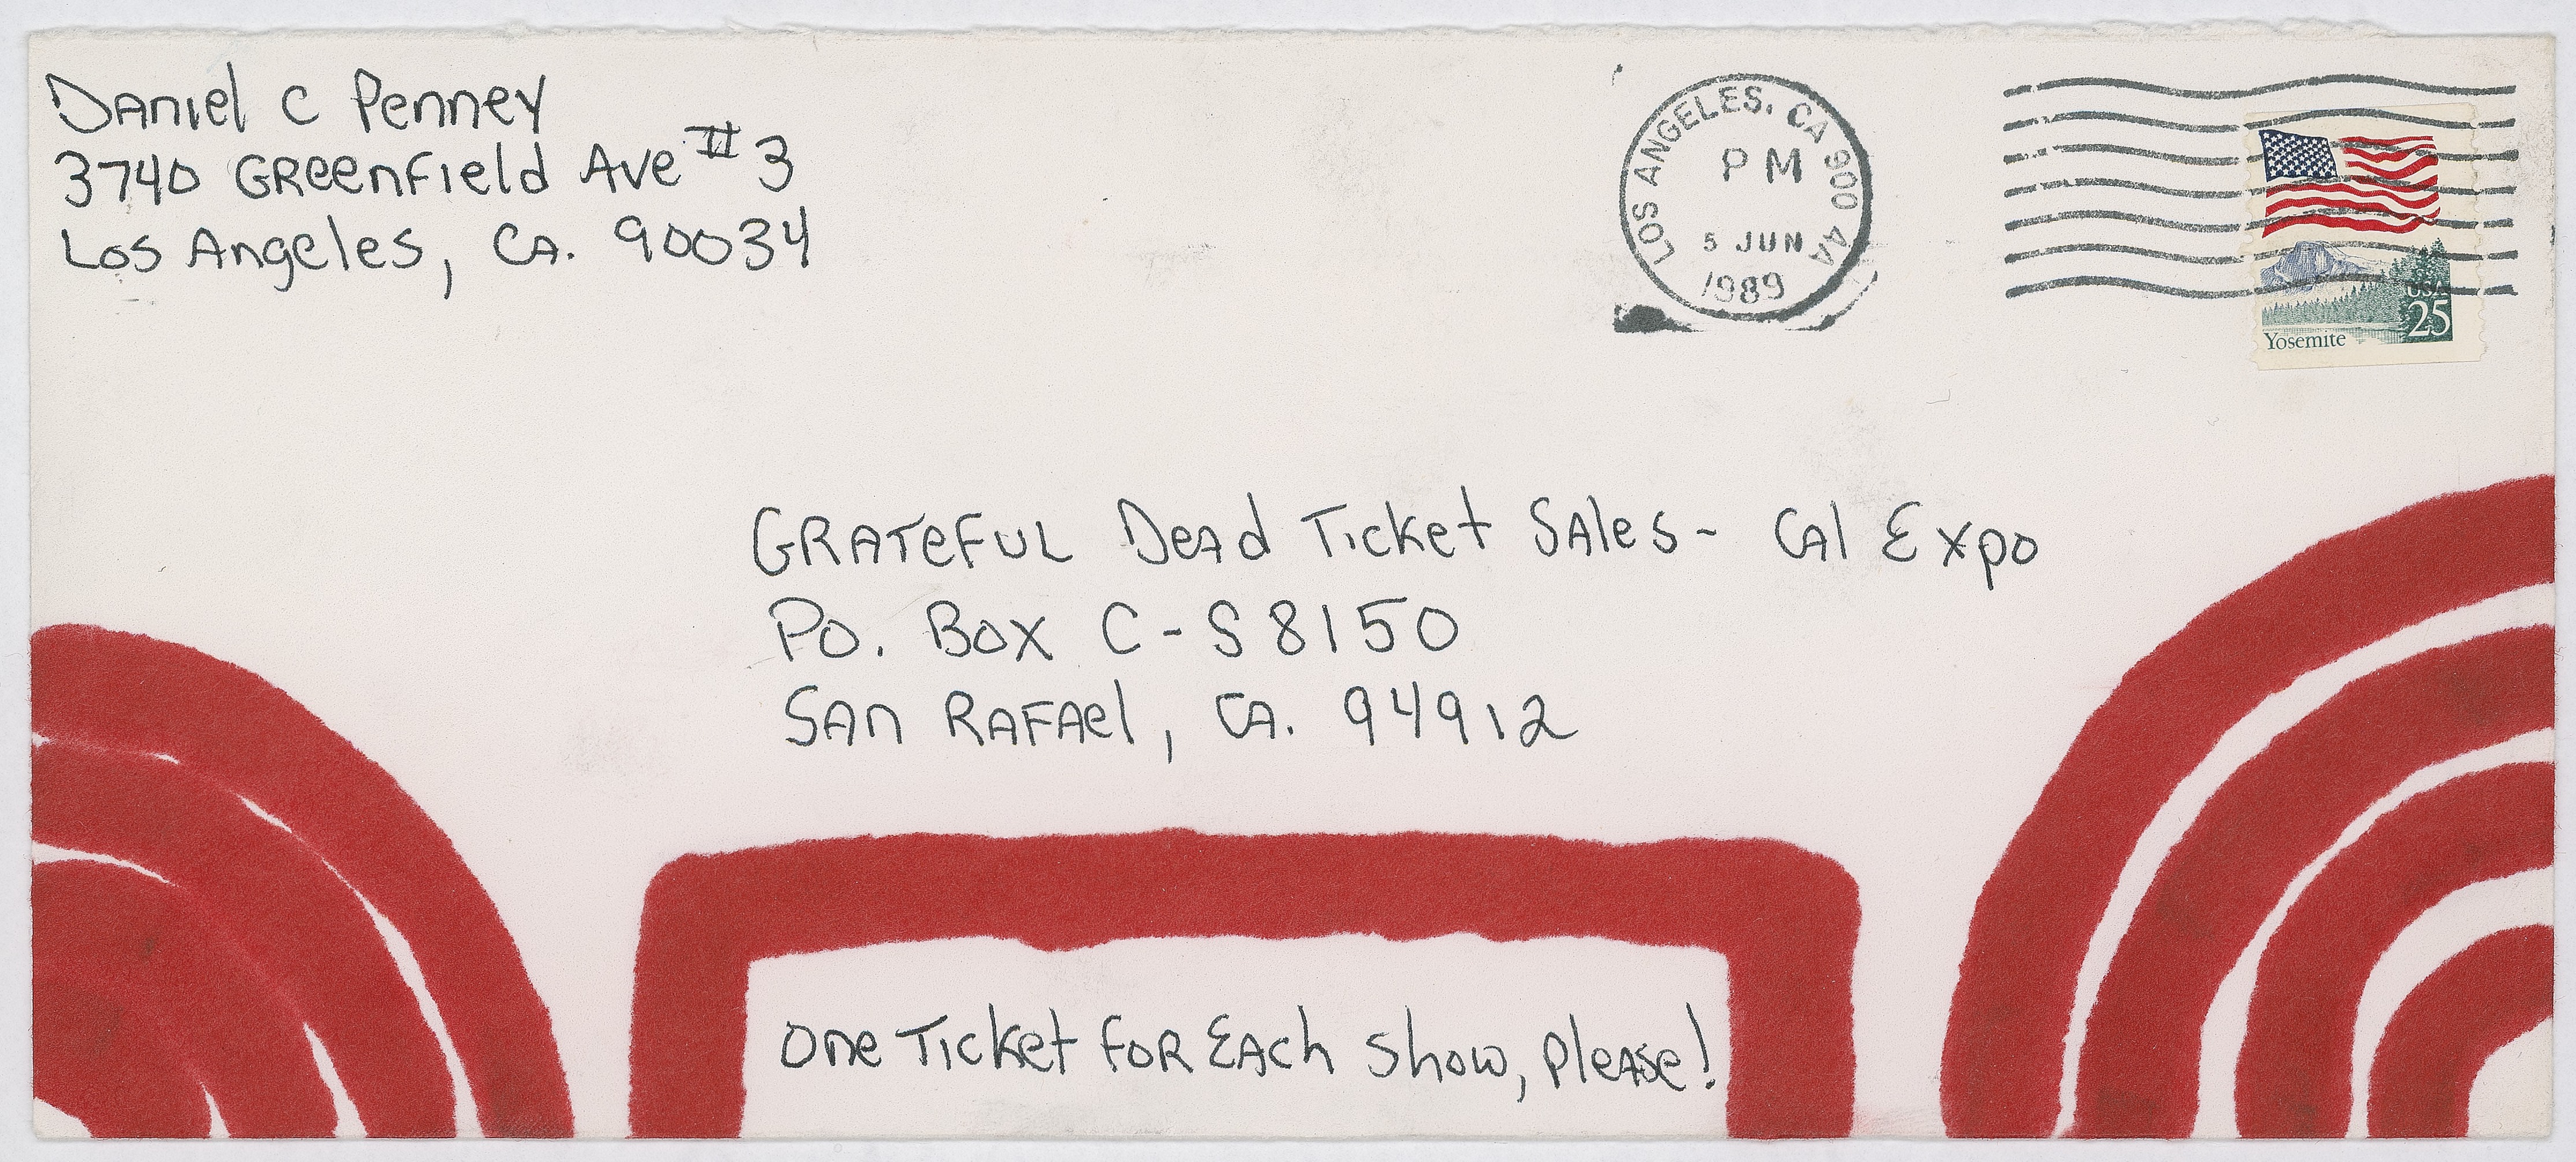 Daniel C Penney
3740 Greenfield Ave #3
Los Angeles, CA. 90034
LOS ANGELES, CA 900 4A
PM
5 JUN
1989
USA
25
Yosemite
Grateful Dead Ticket Sales - Cal Expo
Po. Box C-S8150
San Rafael, CA. 94912
One Ticket for Each Show, Please!